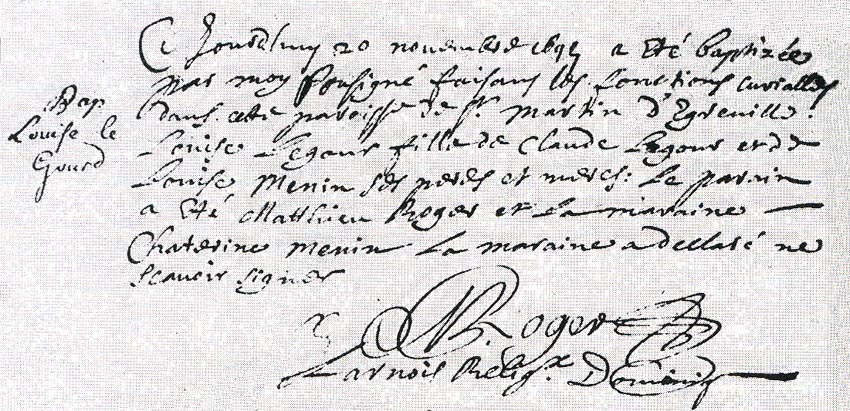 Ce Jourdhuy 20 novembre 169 a été baptizée
par moy sousigné faisant les fonctions curialles
dans cette paroisse de St Martin d'Egreville
Bap
Louise le
Gourd
Louise Legour fille de Claude Legour et de
Louise Menin ses peres et meres: Le parain
a été Matthieu Roger et La maraine —
Chaterine menin La maraine a dellaré ne
scavoir signer
Roger
Larnois Relig.x Domini —